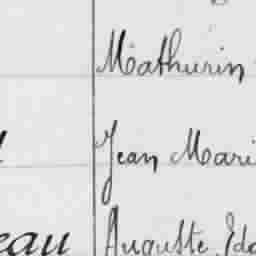 Mathurin
Jean Mari
eau Auguste Edo